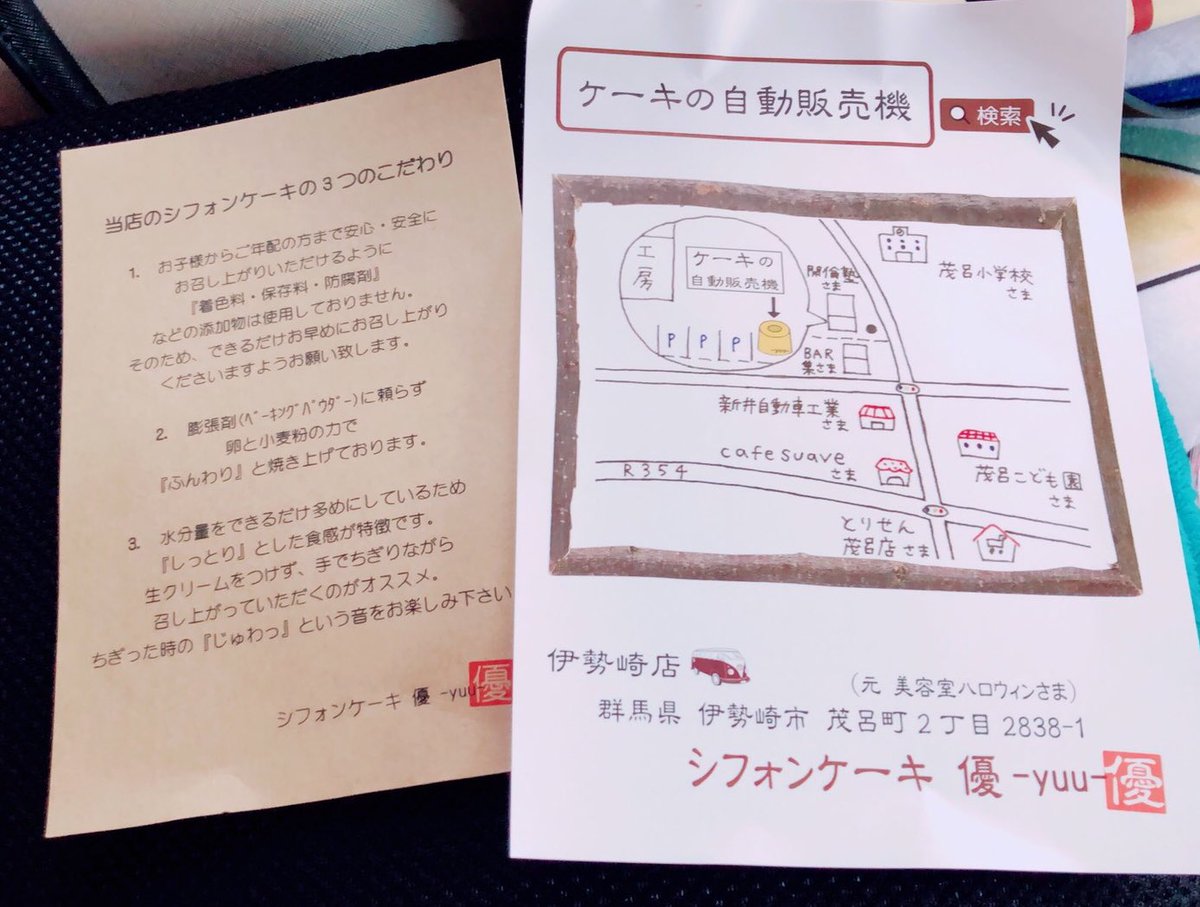 当店のシフォンケーキの3つのこだわり
1. お子様からご年配の方まで安心・安全に
お召し上がりいただけるように
『着色料・保存料・防腐剤』
などの添加物は使用しておりません。
そのため、できるだけお早めにお召し上がり
くださいますようお願い致します。
2. 膨張剤(ﾍﾞｰｷﾝｸﾞﾊﾟｳﾀﾞｰ)に頼らず
卵と小麦粉の力で
『ふんわり』と焼き上げております。
3. 水分量をできるだけ多めにしているため
『しっとり』とした食感が特徴です。
生クリームをつけず、手でちぎりながら
召し上がっていただくのがオススメ。
ちぎった時の『じゅわっ』という音をお楽しみ下さい
シフォンケーキ 優 -yuu-
優
ケーキの自動販売機
検索
工房
ケーキの
自動販売機
P P P
開倫塾
さま
茂呂小学校
さま
BAR
集さま
新井自動車工業
さま
cafe suave
さま
R354
茂呂こども園
さま
とりせん
茂呂店さま
伊勢崎店
(元 美容室ハロウィンさま)
群馬県 伊勢崎市 茂呂町2丁目2838-1
シフォンケーキ 優 -yuu-
優